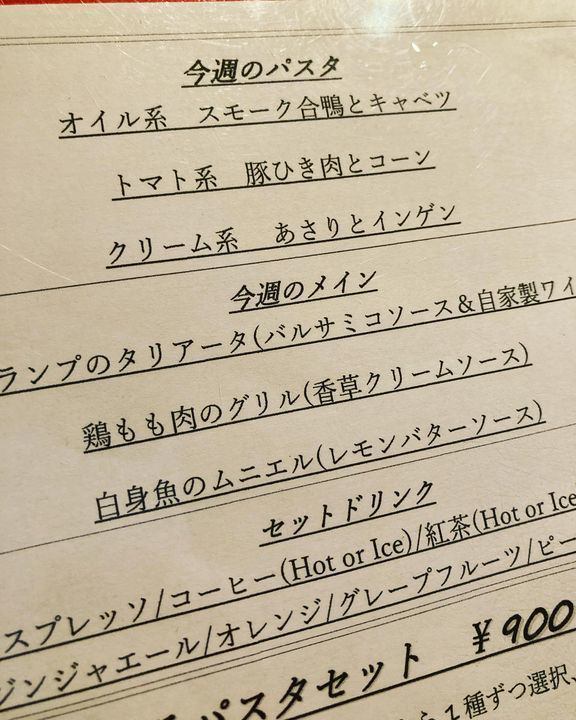 今週のパスタ
オイル系　スモーク合鴨とキャベツ
トマト系　豚ひき肉とコーン
クリーム系　あさりとインゲン
今週のメイン
ランプのタリアータ(バルサミコソース＆自家製ワイ
鶏もも肉のグリル(香草クリームソース)
白身魚のムニエル(レモンバターソース)
セットドリンク
スプレッソ/コーヒー(Hot or Ice)/紅茶(Hot or Ice
ジンジャエール/オレンジ/グレープフルーツ/ピー
パスタセット　¥900
1種ずつ選択、